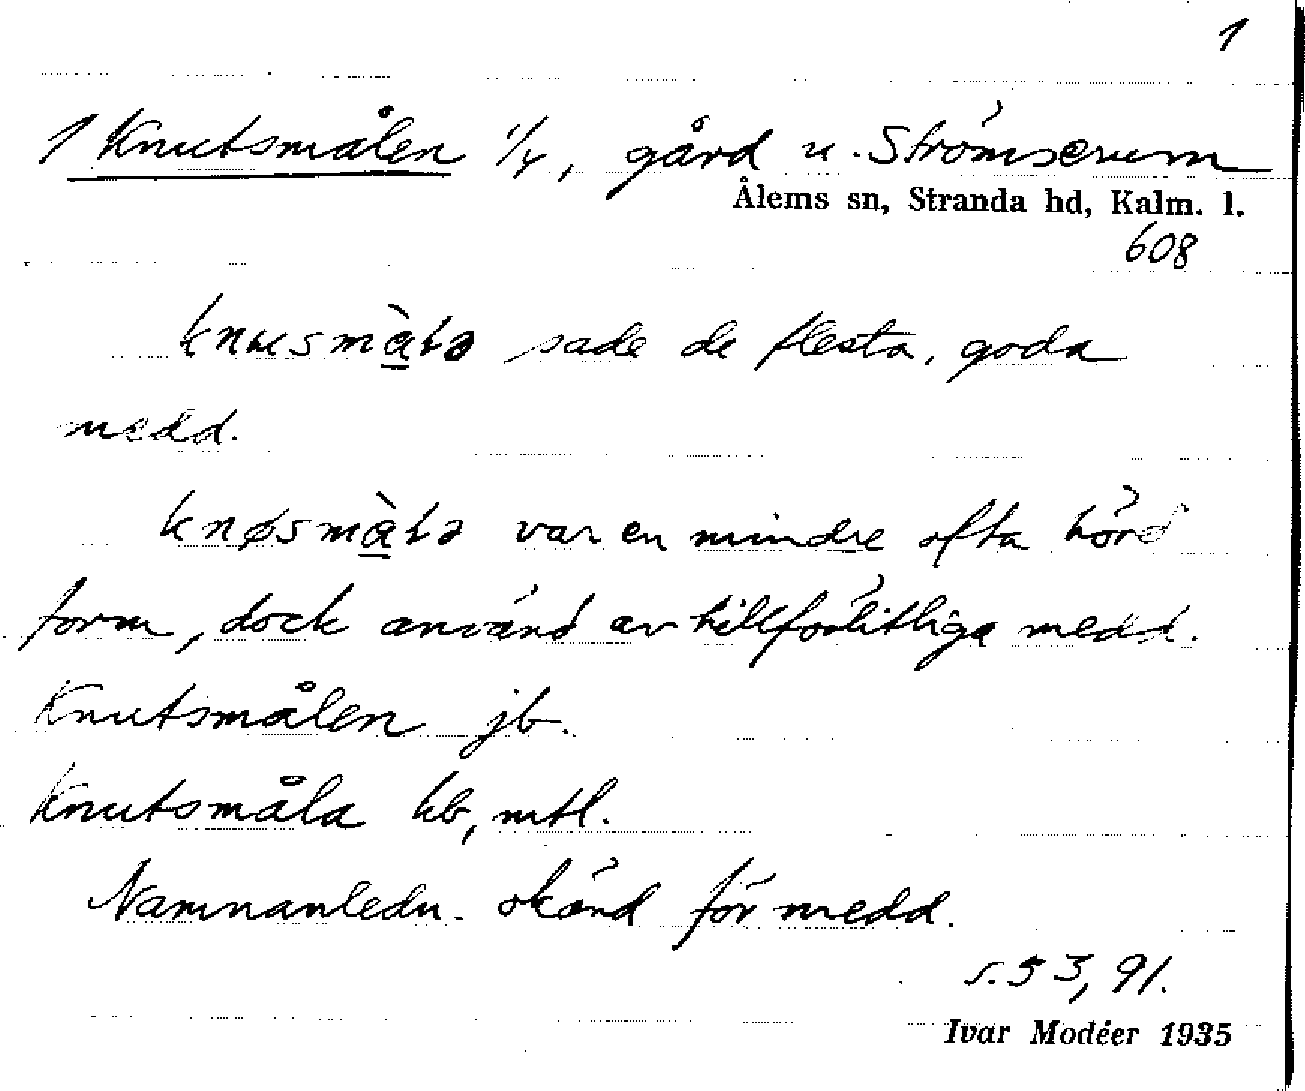 1
1 Knutsmålen 1/4, gård u. Strömserum
Ålems sn, Stranda hd, Kalm. l.
608
knusmàlə sade de flesta, goda
medd.
knøsmàlə var en mindre ofta hörd
form, dock använd av tillförlitliga medd.
Knutsmålen jb.
Knutsmåla kb, mtl.
Namnanledn. okänd för medd.
s. 53, 91.
Ivar Modéer 1935